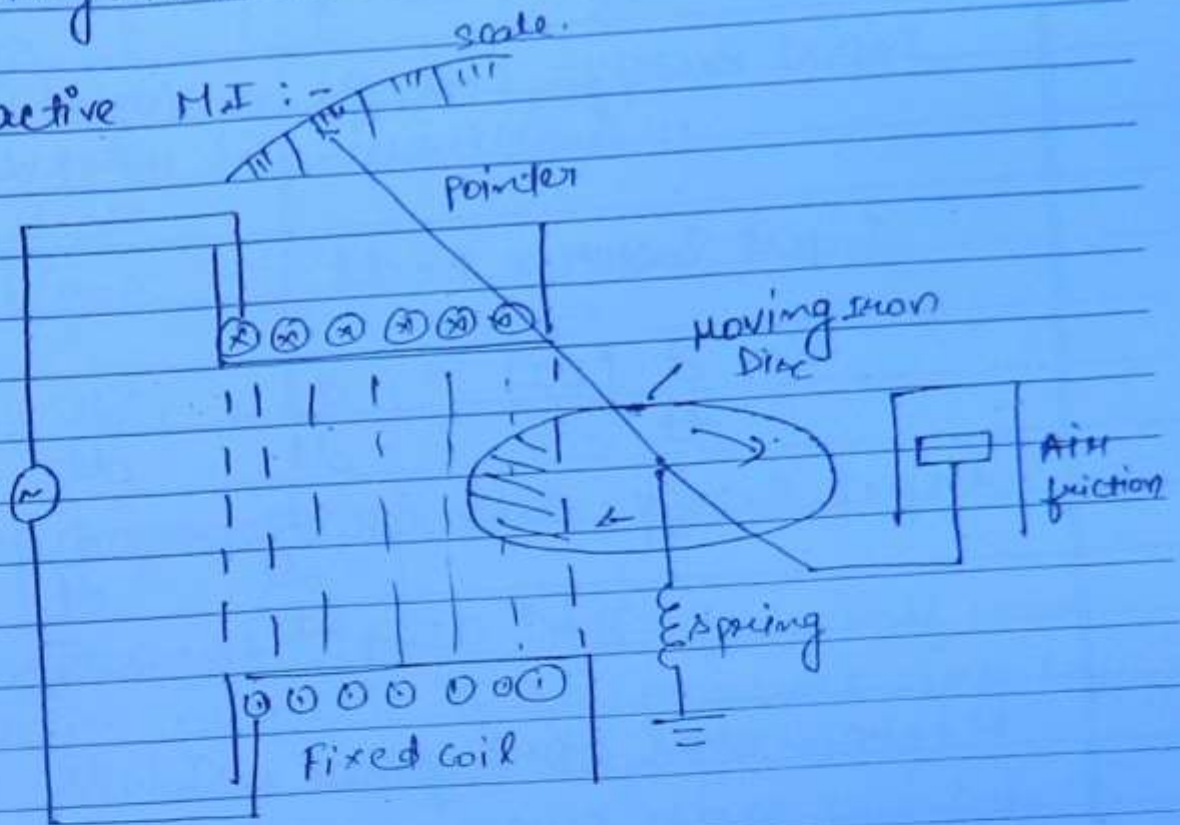 scale.
active M.I :-
Pointer
Moving Iron
Disc
Air
friction
spring
Fixed coil